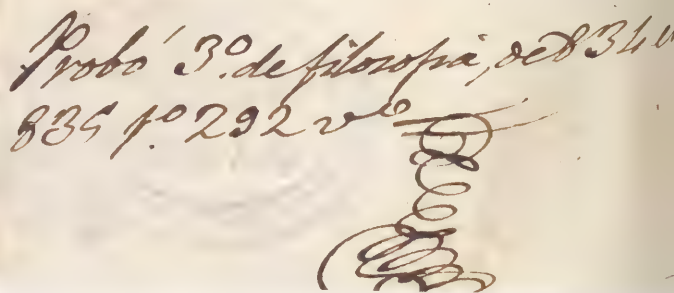 Probó 3.º de filosofia, de 834 a
835 f.º 292 v.to